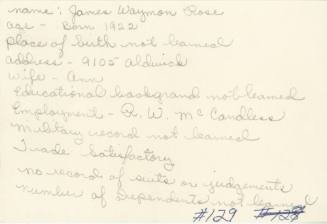 name: James Waymon Rose
age - Born 1922
place of birth not learned
address - 9105 Aldwick
Wife - Ann
Educational background not learned
Employment - R. W. McCandless
Military record not learned
Trade Satisfactory
no record of suits or judgements
number of dependents not learned
#129 #128